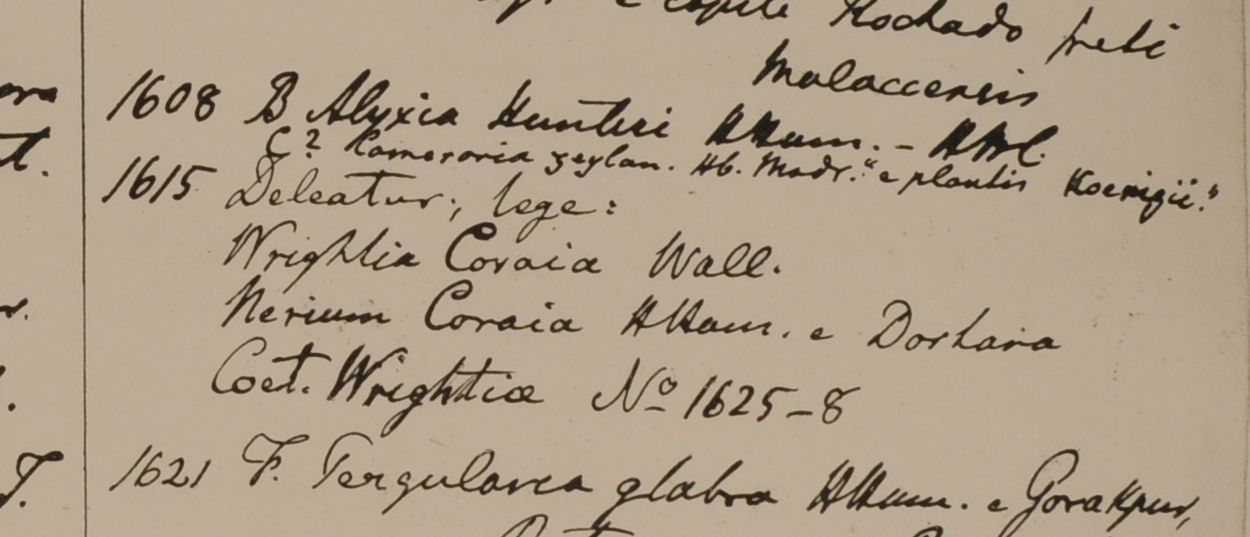 e capite Rochado freti
Malaccensis
1608 B Alyxia Hunteri HHam. - HBC.
C? Cameraria zeylan. Hb. Madr. "e plantis Koenigii."
1615 Deleatur; lege:
Wrightia Coraia Wall.
Nerium Coraia HHam. e Dorhara
Coet. Wrightiæ No 1625-8
1621 F. Pergularia glabra HHam. e Gorakpur,